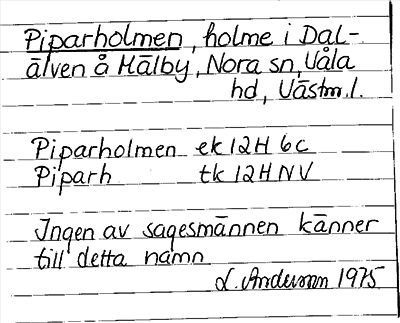 Piparholmen, holme i Dal-
älven å Hälby, Nora sn, Våla
hd, Västm.l.
Piparholmen ek 12H 6c
Piparh tk 12H NV
Ingen av sagesmännen känner
till detta namn
L. Anderson 1975